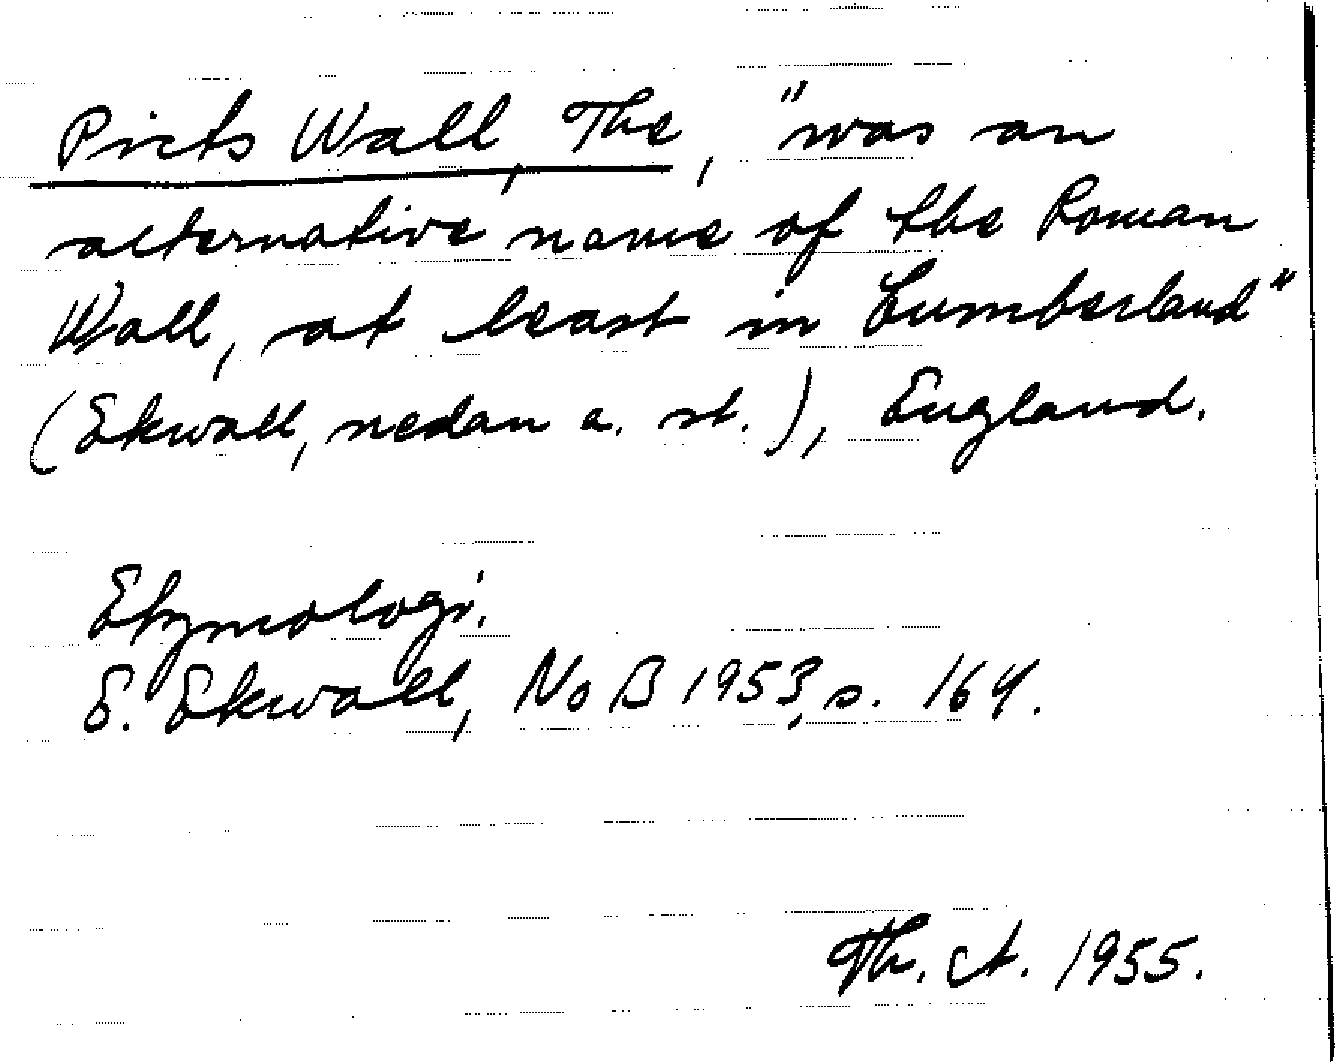 Picts Wall, The, "was an
alternative name of the Roman
Wall, at least in Cumberland"
(Ekwall, nedan a. st.), England.
Etymologi.
E. Ekwall, NoB 1953, s. 164.
Th. A. 1955.